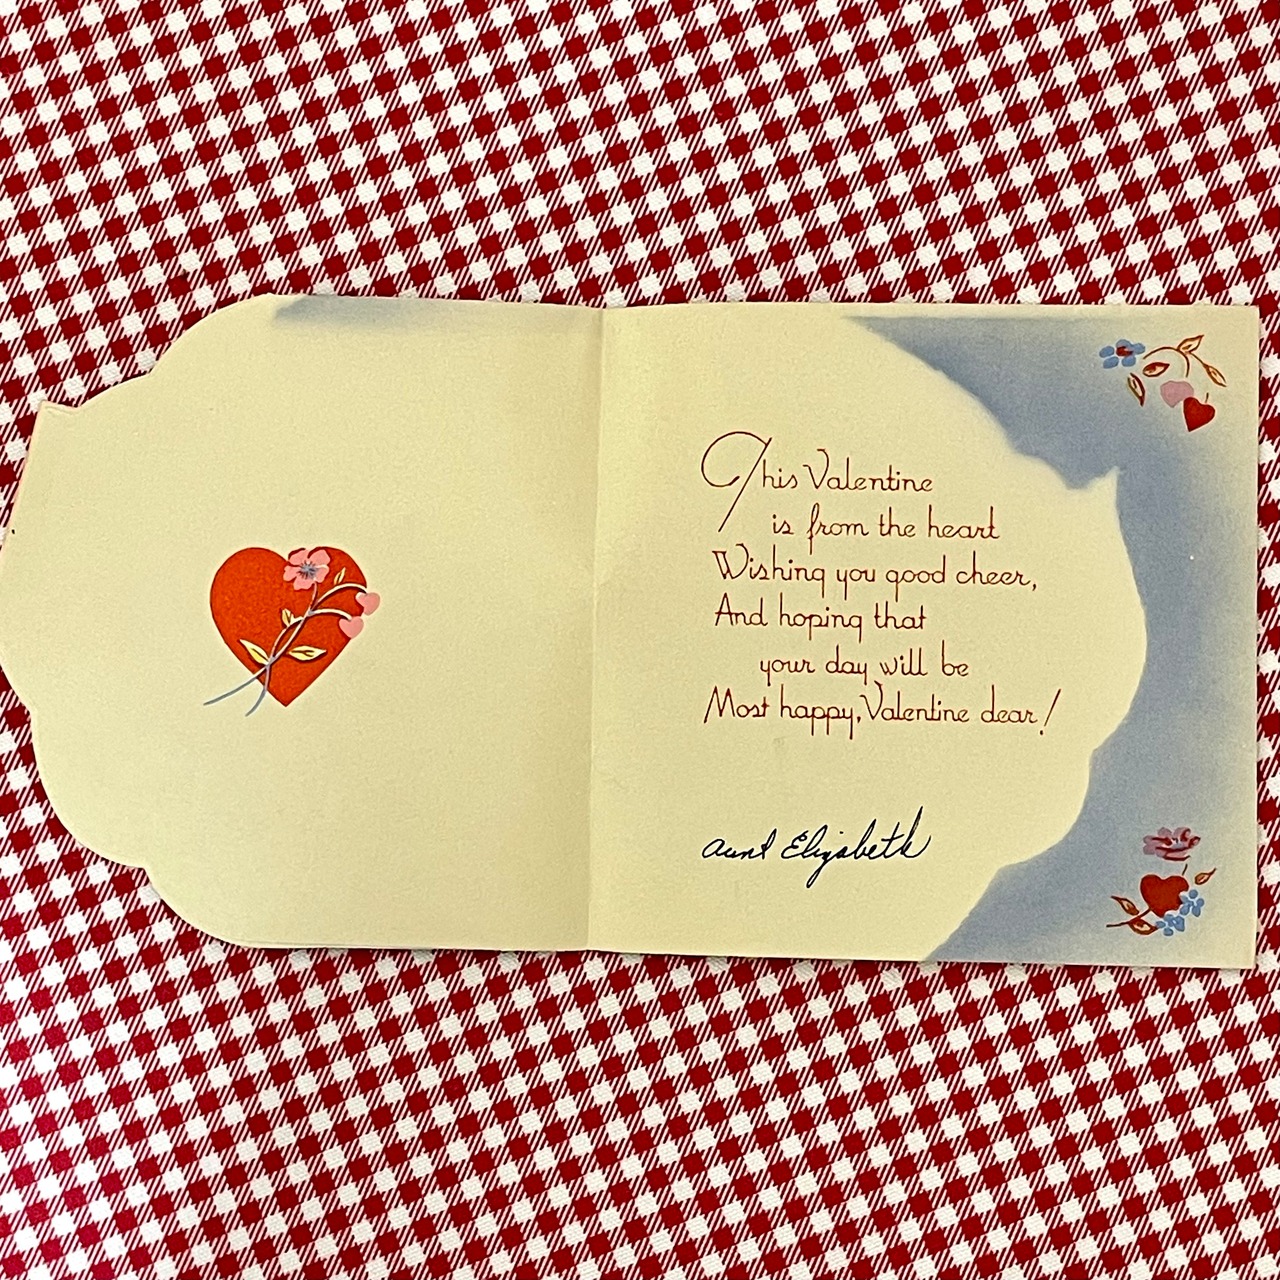 This Valentine
is from the heart
Wishing you good cheer,
And hoping that
your day will be
Most happy, Valentine dear!
Aunt Elizabeth